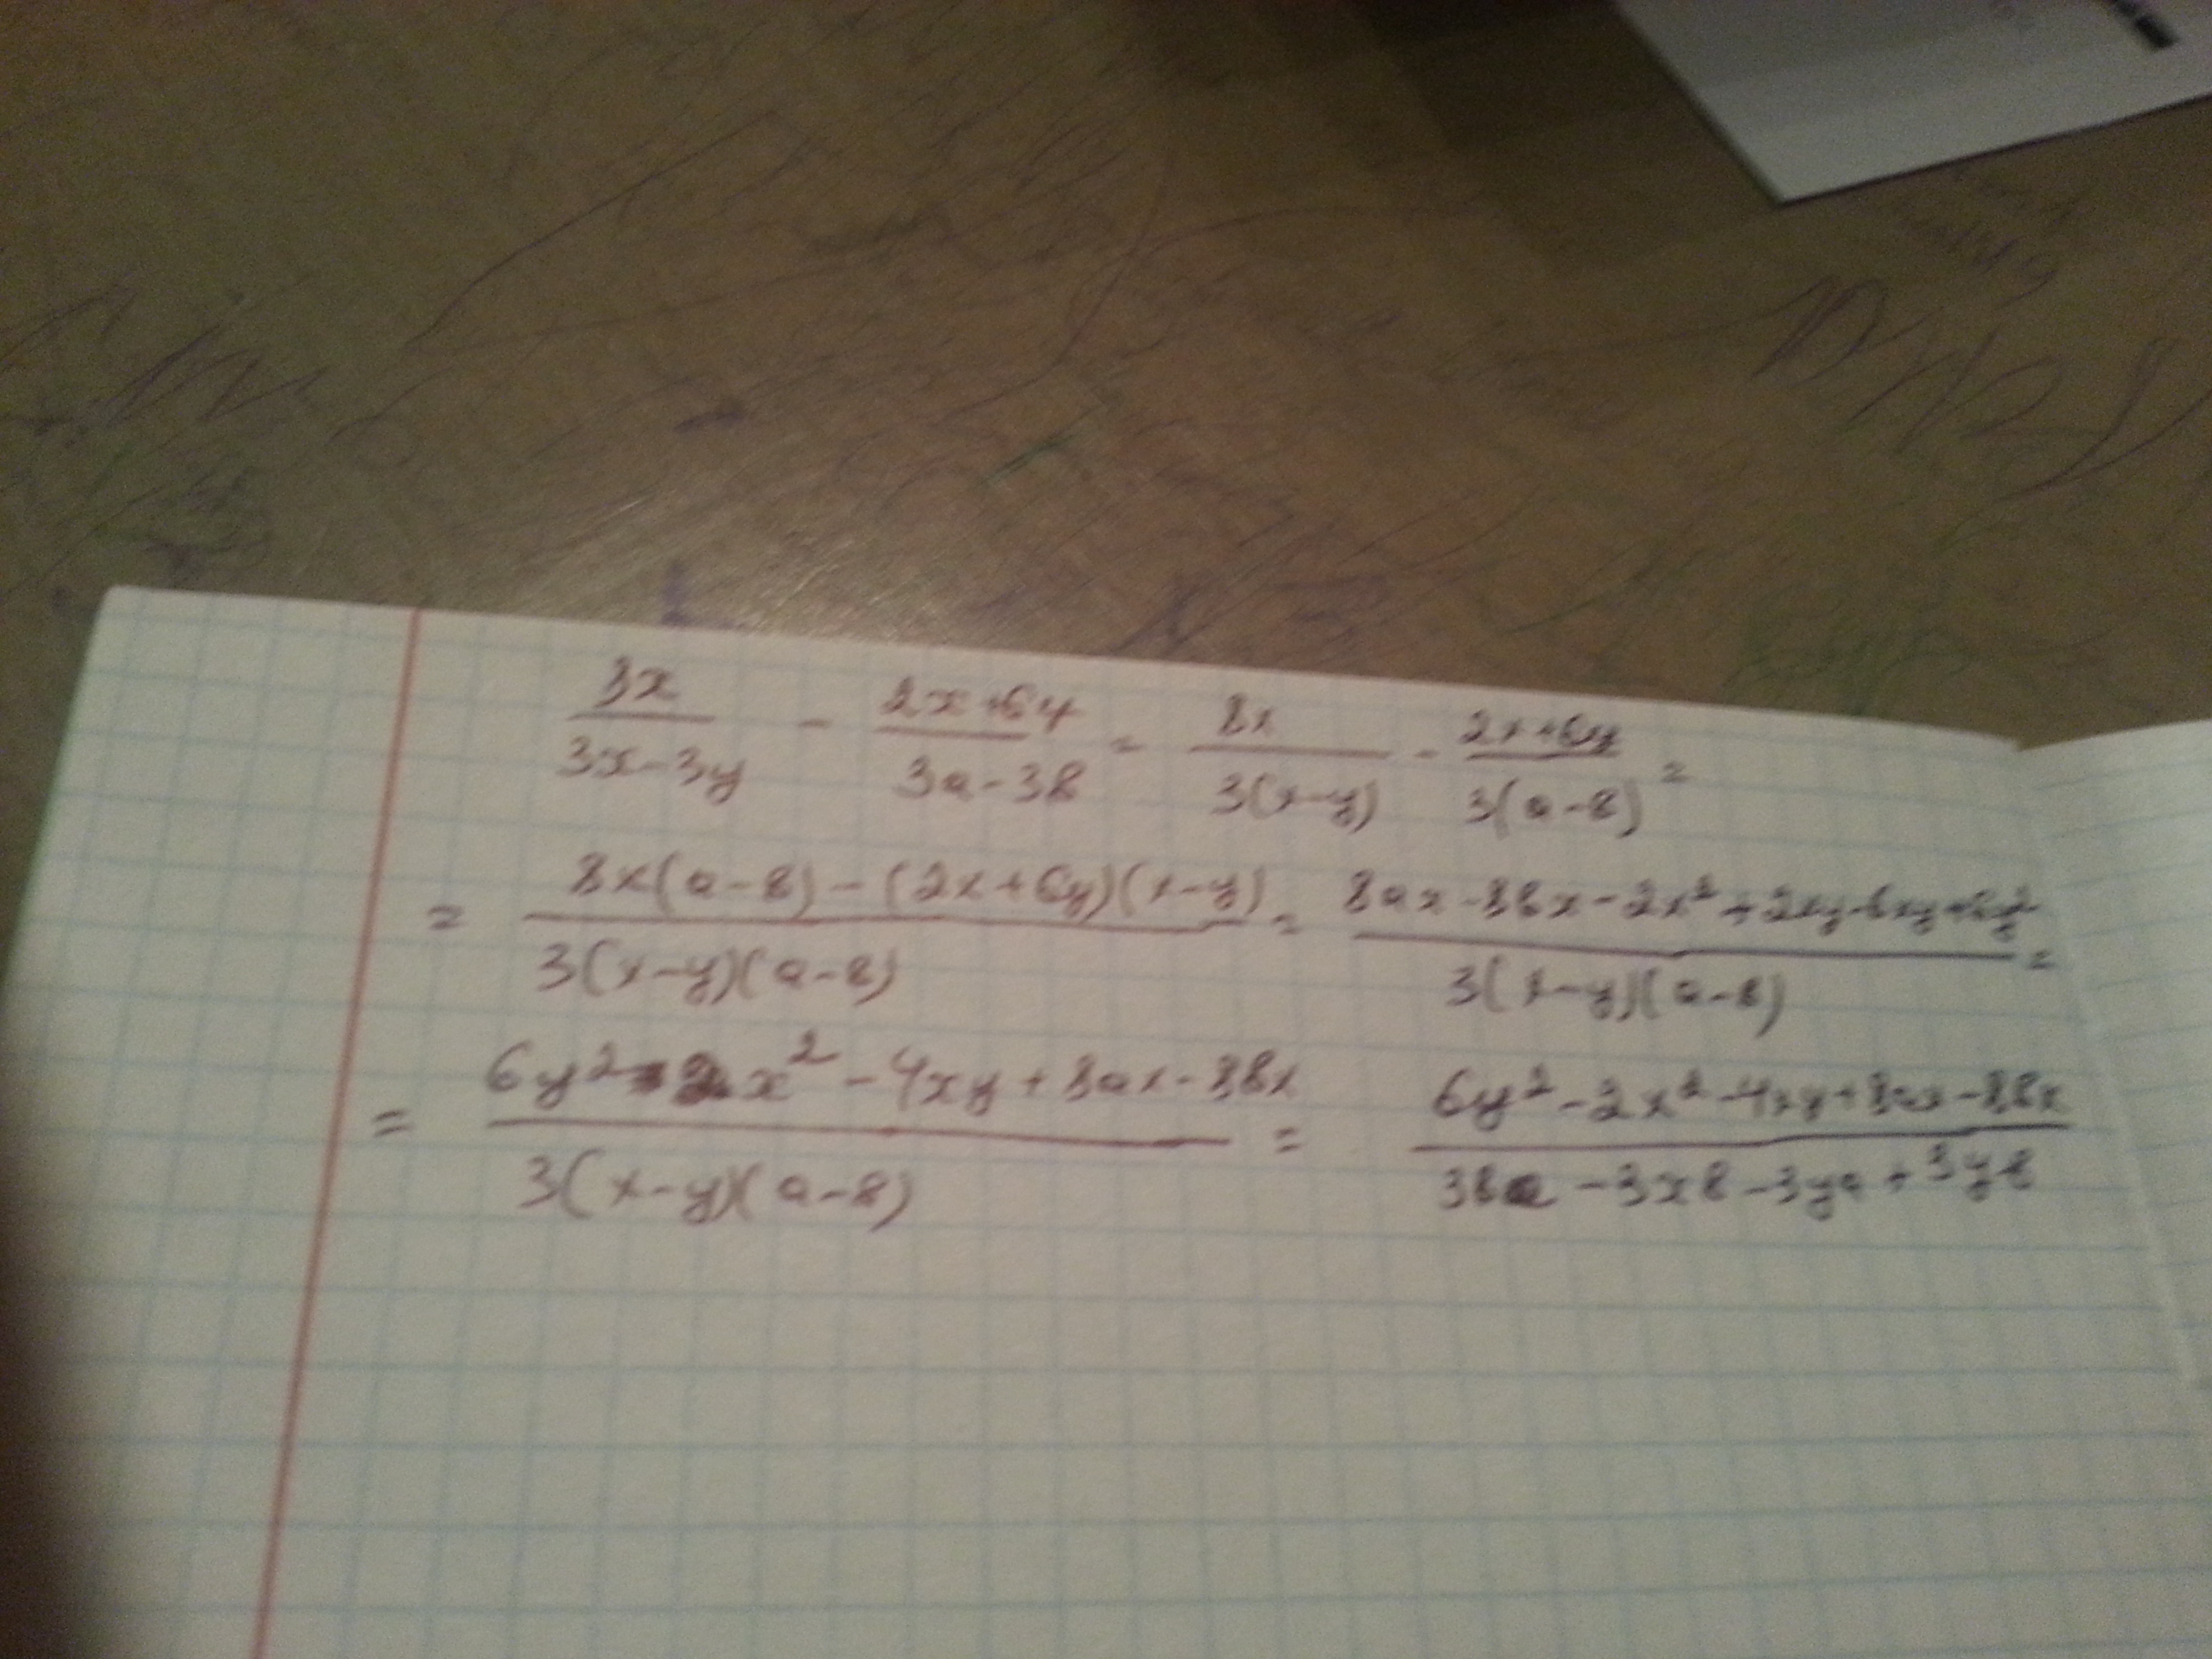 3x/(3x-3y) - (2x+6y)/(3a-3в) = 8x/(3(x-y)) - (2x+6y)/(3(a-в)) =
= (8x(a-в)-(2x+6y)(x-y))/(3(x-y)(a-в)) = (8ax-8вx-2x²+2xy-6xy+6y²)/(3(x-y)(a-в)) =
= (6y²-2x²-4xy+8ax-8вx)/(3(x-y)(a-в)) = (6y²-2x²-4xy+8ax-8вx)/(3xa-3xв-3ya+3yв)